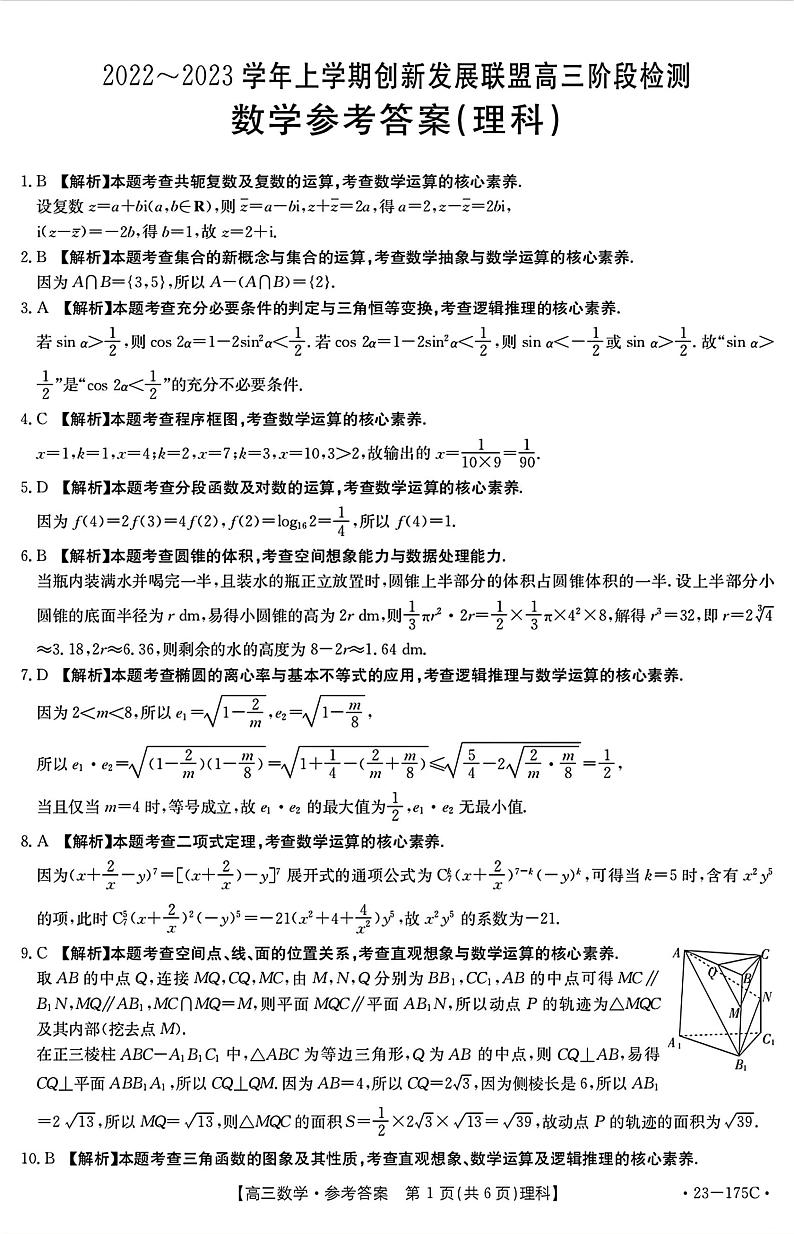 2022～2023学年上学期创新发展联盟高三阶段检测
数学参考答案(理科)
1. B 【解析】本题考查共轭复数及复数的运算,考查数学运算的核心素养.
设复数 z=a+bi(a,b∈R),则 z̄=a-bi,z+z̄=2a,得 a=2,z-z̄=2bi,
i(z-z̄)=-2b,得 b=1,故 z=2+i.
2. B 【解析】本题考查集合的新概念与集合的运算,考查数学抽象与数学运算的核心素养.
因为 A∩B={3,5},所以 A-(A∩B)={2}.
3. A 【解析】本题考查充分必要条件的判定与三角恒等变换,考查逻辑推理的核心素养.
若 sin α>1/2,则 cos 2α=1-2sin²α<1/2. 若 cos 2α=1-2sin²α<1/2,则 sin α<-1/2或 sin α>1/2. 故“sin α>
1/2”是“cos 2α<1/2”的充分不必要条件.
4. C 【解析】本题考查程序框图,考查数学运算的核心素养.
x=1,k=1,x=4;k=2,x=7;k=3,x=10,3>2,故输出的 x=1/(10×9)=1/90.
5. D 【解析】本题考查分段函数及对数的运算,考查数学运算的核心素养.
因为 f(4)=2f(3)=4f(2),f(2)=log₁₆2=1/4,所以 f(4)=1.
6. B 【解析】本题考查圆锥的体积,考查空间想象能力与数据处理能力.
当瓶内装满水并喝完一半,且装水的瓶正立放置时,圆锥上半部分的体积占圆锥体积的一半. 设上半部分小
圆锥的底面半径为 r dm,易得小圆锥的高为 2r dm,则1/3πr²·2r=1/2×1/3π×4²×8,解得 r³=32,即 r=2∛4
≈3.18,2r≈6.36,则剩余的水的高度为 8-2r≈1.64 dm.
7. D 【解析】本题考查椭圆的离心率与基本不等式的应用,考查逻辑推理与数学运算的核心素养.
因为 2<m<8,所以 e₁=√(1-2/m),e₂=√(1-m/8),
所以 e₁·e₂=√((1-2/m)(1-m/8))=√(1+1/4-(2/m+m/8))≤√(5/4-2√(2/m·m/8))=1/2,
当且仅当 m=4 时,等号成立,故 e₁·e₂ 的最大值为1/2,e₁·e₂ 无最小值.
8. A 【解析】本题考查二项式定理,考查数学运算的核心素养.
因为(x+2/x-y)⁷=[(x+2/x)-y]⁷ 展开式的通项公式为 C₇ᵏ(x+2/x)⁷⁻ᵏ(-y)ᵏ,可得当 k=5 时,含有 x²y⁵
的项,此时 C₇⁵(x+2/x)²(-y)⁵=-21(x²+4+4/x²)y⁵,故 x²y⁵ 的系数为-21.
9. C 【解析】本题考查空间点、线、面的位置关系,考查直观想象与数学运算的核心素养.
取 AB 的中点 Q,连接 MQ,CQ,MC,由 M,N,Q 分别为 BB₁,CC₁,AB 的中点可得 MC∥
B₁N,MQ∥AB₁,MC∩MQ=M,则平面 MQC∥平面 AB₁N,所以动点 P 的轨迹为△MQC
及其内部(挖去点 M).
在正三棱柱 ABC-A₁B₁C₁ 中,△ABC 为等边三角形,Q 为 AB 的中点,则 CQ⊥AB,易得
CQ⊥平面 ABB₁A₁,所以 CQ⊥QM. 因为 AB=4,所以 CQ=2√3,因为侧棱长是 6,所以 AB₁
=2√13,所以 MQ=√13,则△MQC 的面积 S=1/2×2√3×√13=√39,故动点 P 的轨迹的面积为√39.
A
C
Q
B
N
M
A₁
C₁
B₁
10. B 【解析】本题考查三角函数的图象及其性质,考查直观想象、数学运算及逻辑推理的核心素养.
【高三数学·参考答案 第 1 页(共 6 页)理科】
·23-175C·